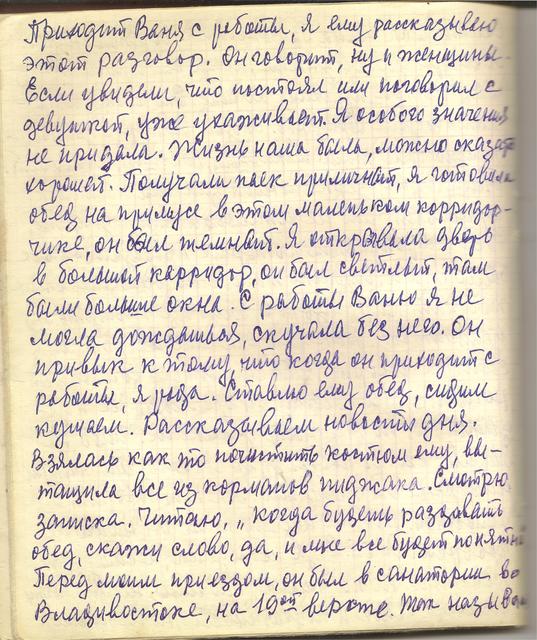 Приходит Ваня с работы, я ему рассказываю
этот разговор. Он говорит, ну и женщины.
Если увидели, что постоял или поговорил с
девушкой, уже ухаживает. Я особого значения
не придала. Жизнь наша была, можно сказать
хорошей. Получали паек приличный, я готовила
обед на примусе в этом маленьком корридор-
чике, он был темный. Я открывала дверь
в большой карридор, он был светлый, там
были большие окна. С работы Ваню я не
могла дождаться, скучала без него. Он
привык к тому, что когда он приходит с
работы, я рада. Ставлю ему обед, сидим
кушаем. Рассказываем новости дня.
Взялась как то почистить костюм ему, вы-
тащила все из корманов пиджака. Смотрю,
записка. Читаю, „когда будешь раздавать
обед, скажи слово, да, и мне все будет понятно
Перед моим приездом, он был в санатории во
Владивостоке, на 19ой версте. Так называ